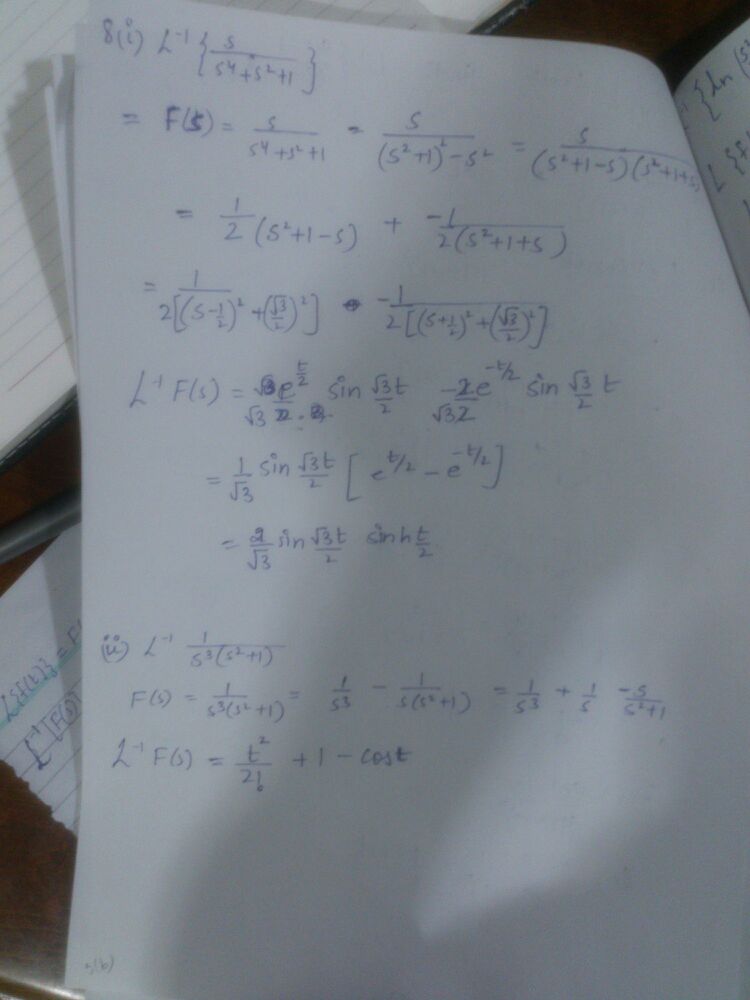 8(i) L⁻¹ { s / (s⁴+s²+1) }
= F(s) = s / (s⁴+s²+1) = s / ((s²+1)² - s²) = s / ((s²+1-s)(s²+1+s))
= 1 / 2(s²+1-s) + -1 / 2(s²+1+s)
= 1 / 2[(s-1/2)² + (√3/2)²] -1 / 2[(s+1/2)² + (√3/2)²]
L⁻¹ F(s) = e^(t/2) sin √3t/2 e^(-t/2) sin √3/2 t
= 1/√3 sin √3t/2 [ e^(t/2) - e^(-t/2) ]
= 2/√3 sin √3t/2 sinh t/2
(ii) L⁻¹ 1 / (s³(s²+1))
F(s) = 1 / (s³(s²+1)) = 1/s³ - 1 / (s(s²+1)) = 1/s³ + 1/s -s / (s²+1)
L⁻¹ F(s) = t²/2! + 1 - cost
L{f(t)} = F
L⁻¹ [F(s)]
⁻¹ { ln (s²